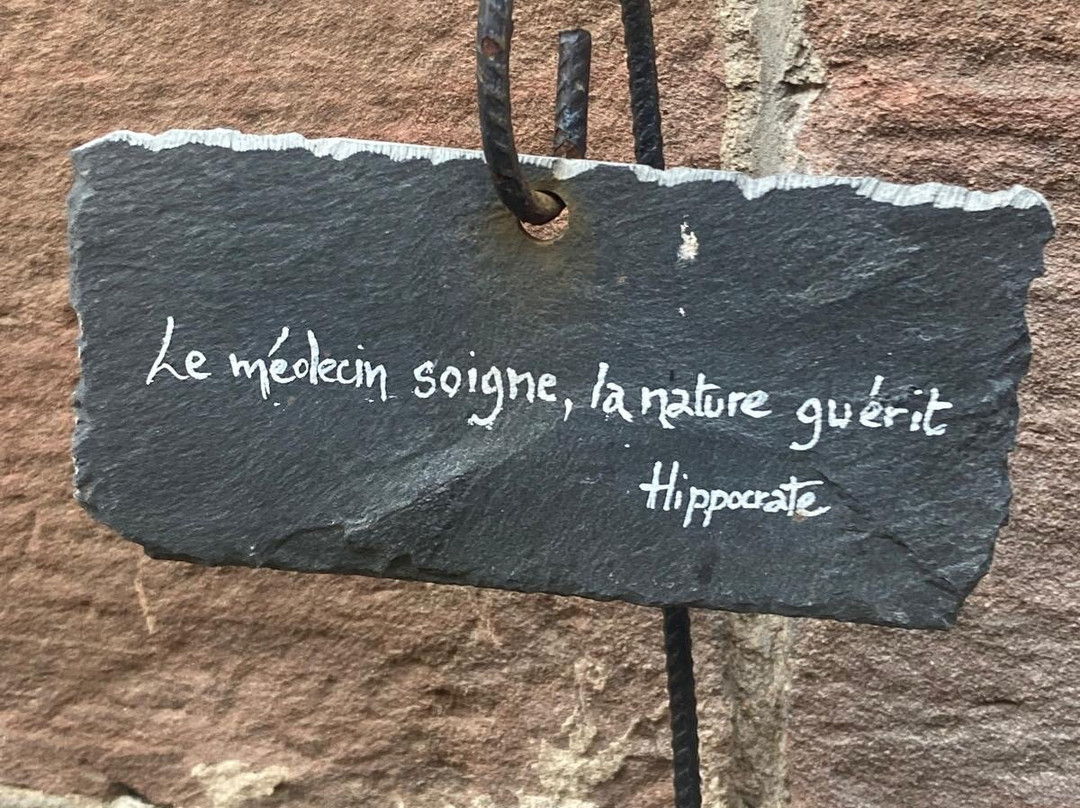 Le médecin soigne, la nature guérit
Hippocrate